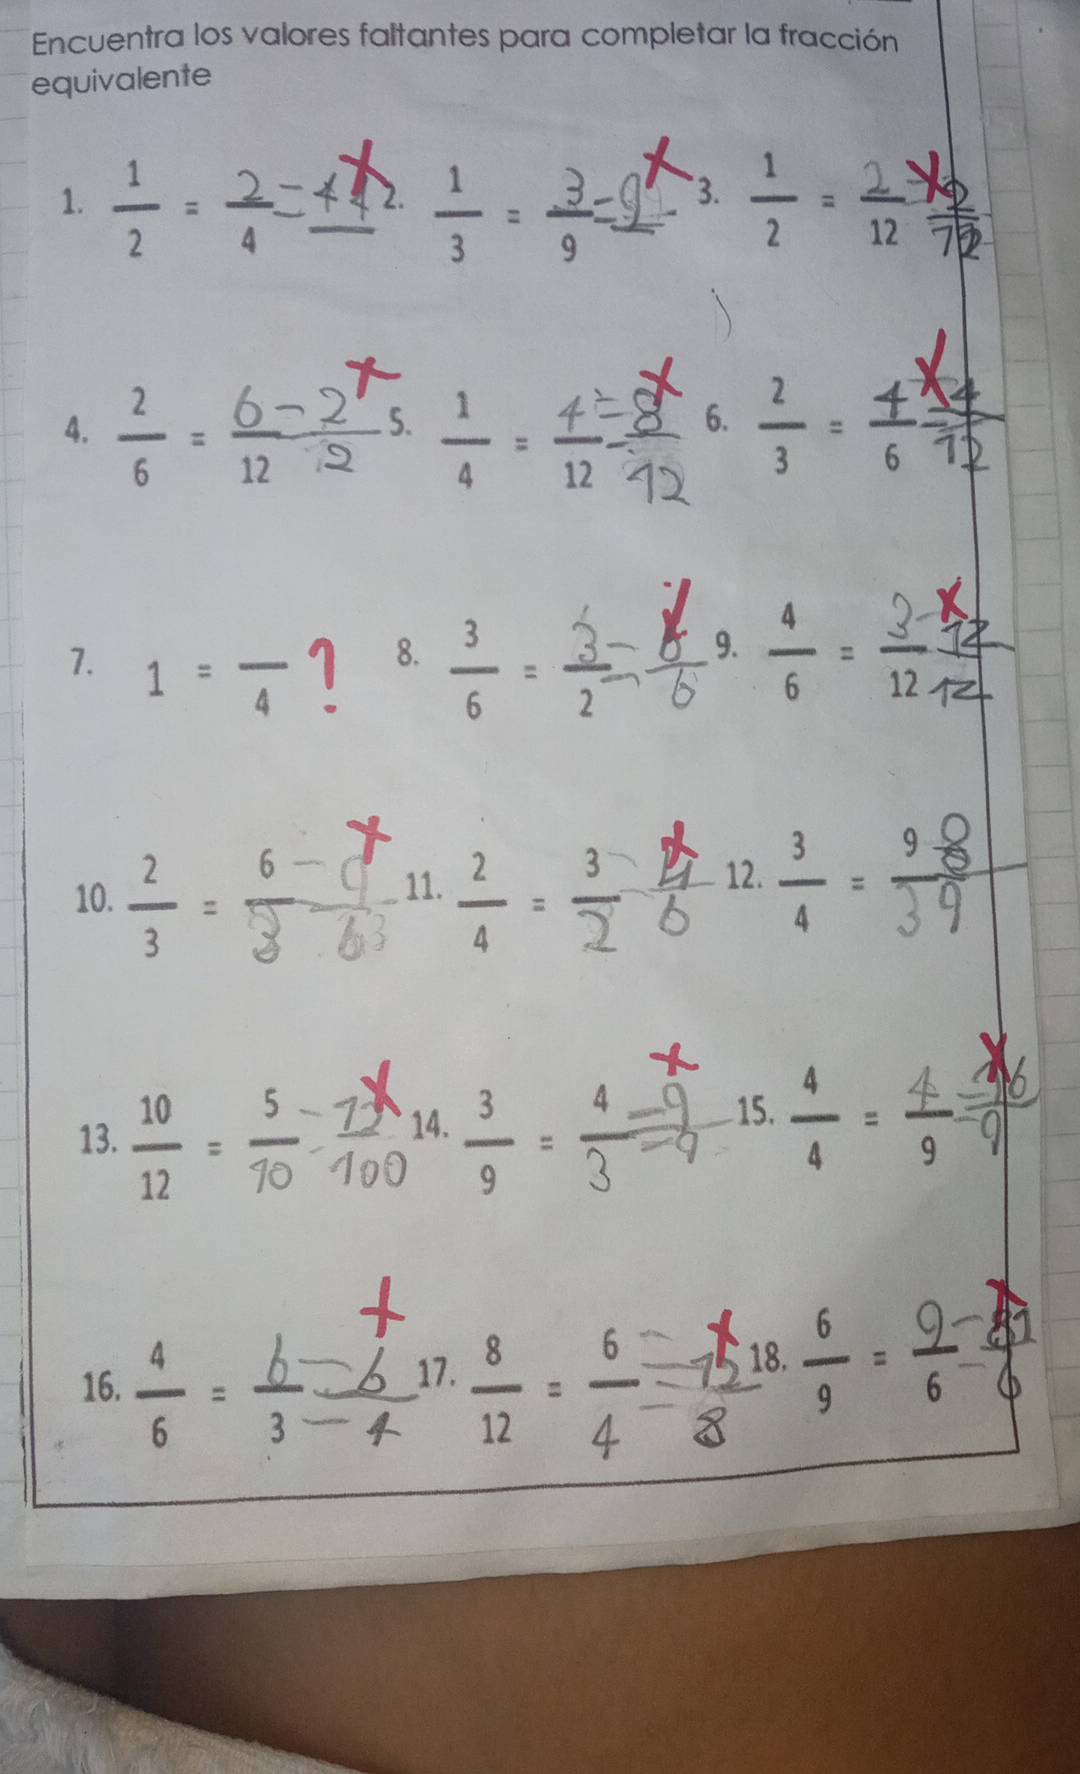 Encuentra los valores faltantes para completar la fracción
equivalente
1. 1/2 = 2/4 = 2. 1/3 = 3/9 = 3. 1/2 = 2/12
4. 2/6 = 6/12 - 2/12 5. 1/4 = 4/12 = 8/12 6. 2/3 = 4/6 = 4/12
7. 1 = /4 ? 8. 3/6 = 3/2 = 6/6 9. 4/6 = 3/12 - 12/12
10. 2/3 = 6/3 - 11. 2/4 = 3/2 - 4/6 12. 3/4 = 9/3 8/9
13. 10/12 = 5/10 - /100 14. 3/9 = 4/3 = 9/9 15. 4/4 = 4/9 = 16/9
16. 4/6 = 6/3 = 6/4 17. 8/12 = 6/4 = /8 18. 6/9 = 9/6 = /6